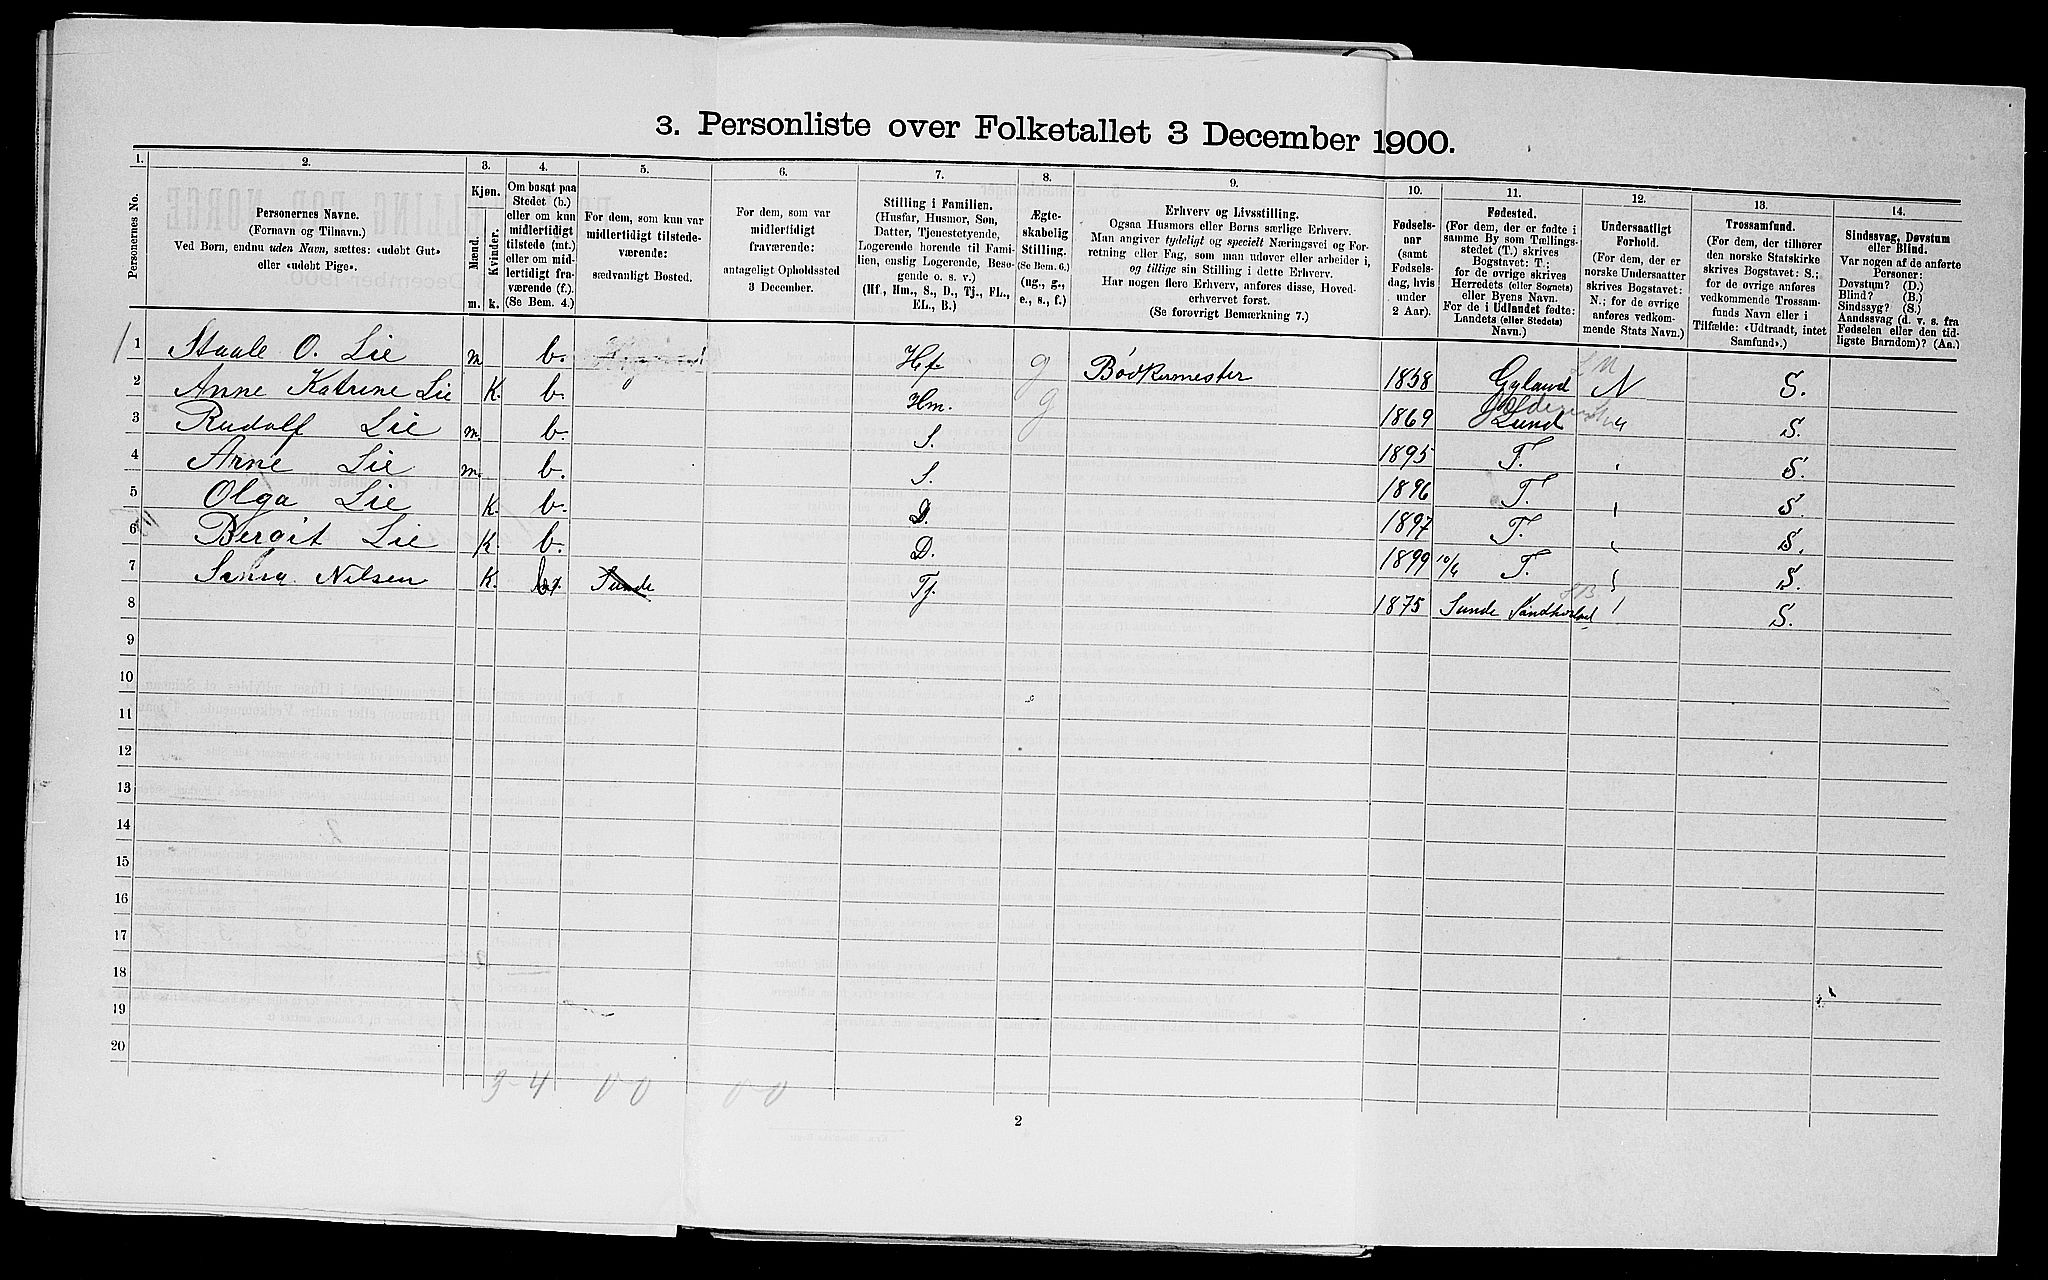 3. Personliste over Folketallet 3 December 1900.
1. 2. 3. 4. 5. 6. 7. 8. 9. 10. 11. 12. 13. 14.
Personernes No.
Personernes Navne.
(Fornavn og Tilnavn.)
Ved Børn, endnu uden Navn, sættes: «udøbt Gut»
eller «udøbt Pige».
Kjøn.
Mænd.
Kvinder.
m. k.
Om bosat paa
Stedet (b.)
eller om kun
midlertidigt
tilstede (mt.)
eller om mid-
lertidigt fra-
værende (f.).
(Se Bem. 4.)
For dem, som kun var
midlertidigt tilstede-
værende:
sædvanligt Bosted.
For dem, som var
midlertidigt
fraværende:
antageligt Opholdssted
3 December.
Stilling i Familien.
(Husfar, Husmor, Søn,
Datter, Tjenestetyende,
Logerende hørende til Fami-
lien, enslig Logerende, Besø-
gende o. s. v.)
(Hf., Hm., S., D., Tj., FL.,
EL., B.)
Ægte-
skabelig
Stilling.
(Se Bem. 6.)
(ug., g.,
e., s., f.)
Erhverv og Livsstilling.
Ogsaa Husmors eller Børns særlige Erhverv.
Man angiver tydeligt og specielt Næringsvei og For-
retning eller Fag, som man udøver eller arbeider i,
og tillige sin Stilling i dette Erhverv.
Har nogen flere Erhverv, anføres disse, Hoved-
erhvervet først.
(Se forøvrigt Bemærkning 7.)
Fødsels-
aar
(samt
Fødsels-
dag, hvis
under
2 Aar).
Fødested.
(For dem, der er fødte i
samme By som Tællings-
stedet (T.) skrives
Bogstavet: T.;
for de øvrige skrives
Herredets (eller Sognets)
eller Byens Navn.
For de i Udlandet fødte:
Landets (eller Stedets)
Navn.)
Undersaatligt
Forhold.
(For dem, der er
norske Undersaatter
skrives Bogstavet:
N.; for de øvrige
anføres vedkom-
mende Stats Navn.)
Trossamfund.
(For dem, der tilhører
den norske Statskirke
skrives Bogstavet: S.;
for de øvrige anføres
vedkommende Trossam-
funds Navn eller i
Tilfælde: «Udtraadt, intet
Samfund».)
Sindssvag, Døvstum
eller Blind.
Var nogen af de anførte
Personer:
Døvstum? (D.)
Blind? (B.)
Sindssyg? (S.)
Aandssvag (d. v. s. fra
Fødselen eller den tid-
ligste Barndom)? (Aa.)
1 Staale O. Lie m b. Hf g Bödkermester 1858 Gyland N S.
2 Anne Katrine Lie K. b. Hm. g 1869 Lund S.
3 Rudolf Lie m. b. S. 1895 T. S.
4 Arne Lie m. b. S. 1896 T. S.
5 Olga Lie K. b. D. 1897 T. S.
6 Bergit Lie K. b. D. 1899 10/6 T. S.
7 Nilsen K. b Sunde Tj. 1875 Sunde S.
8
9
10
11
12
13
14
15
16
17
18
19
20
3-4 0-0 0-0
2